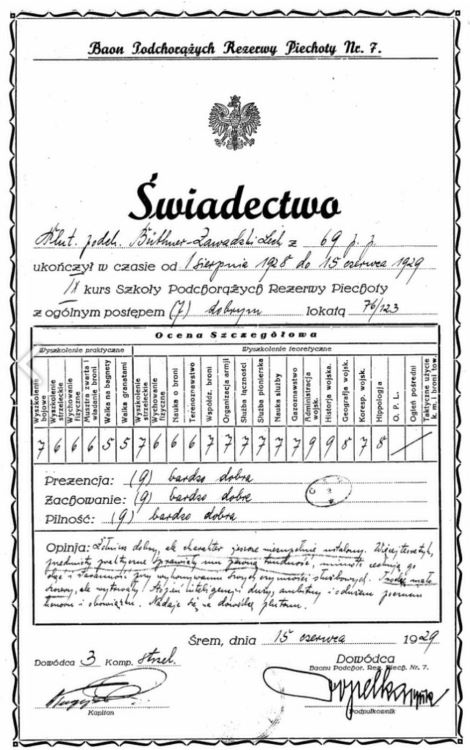 Baon Podchorążych Rezerwy Piechoty Nr. 7.
Świadectwo
Plut. podch. Büthner-Zawadzki Lech z 69 p. p.
ukończył w czasie od 1 sierpnia 1928 do 15 czerwca 1929
IX kurs Szkoły Podchorążych Rezerwy Piechoty
z ogólnym postępem (7) dobrym lokatą 76/123
Ocena Szczegółowa
Wyszkolenie praktyczne Wyszkolenie teoretyczne
Wyszkolenie bojowe
Wyszkolenie strzeleckie
Wychowanie fizyczne
Musztra zwarta i władanie bronią
Walka na bagnety
Walka granatami
Wyszkolenie strzeleckie
Wychowanie fizyczne
Nauka o broni
Terenoznawstwo
Współdz. broni
Organizacja armji
Służba łączności
Służba pionierska
Nauka służby
Gazoznawstwo
Administracja wojsk.
Historja wojsk.
Geografja wojsk.
Koresp. wojsk.
Hippologja
O. P. L.
Ogień pośredni
Taktyczne użycie k. m. i broni tow.
7 6 6 6 5 5 7 6 6 6 7 7 7 7 7 7 9 9 8 7 8
Prezencja: (9) bardzo dobra
Zachowanie: (9) bardzo dobre
Pilność: (9) bardzo dobra
Opinja: Żołnierz dobry, ale charakter jeszcze niezupełnie ustalony. Więcej teoretyk,
przedmioty praktyczne sprawiały mu pewną trudność,
przy wykonywaniu czynności służbowych.
ale wytrwały. Stopień inteligencji duży, ambitny
honoru i obowiązku. Nadaje się na dowódcę plutonu.
Śrem, dnia 15 czerwca 1929
Dowódca 3 Komp. strzel.
Dowódca
Baonu Podchor. Rez. Piech. Nr. 7.
Kapitan
Podpułkownik